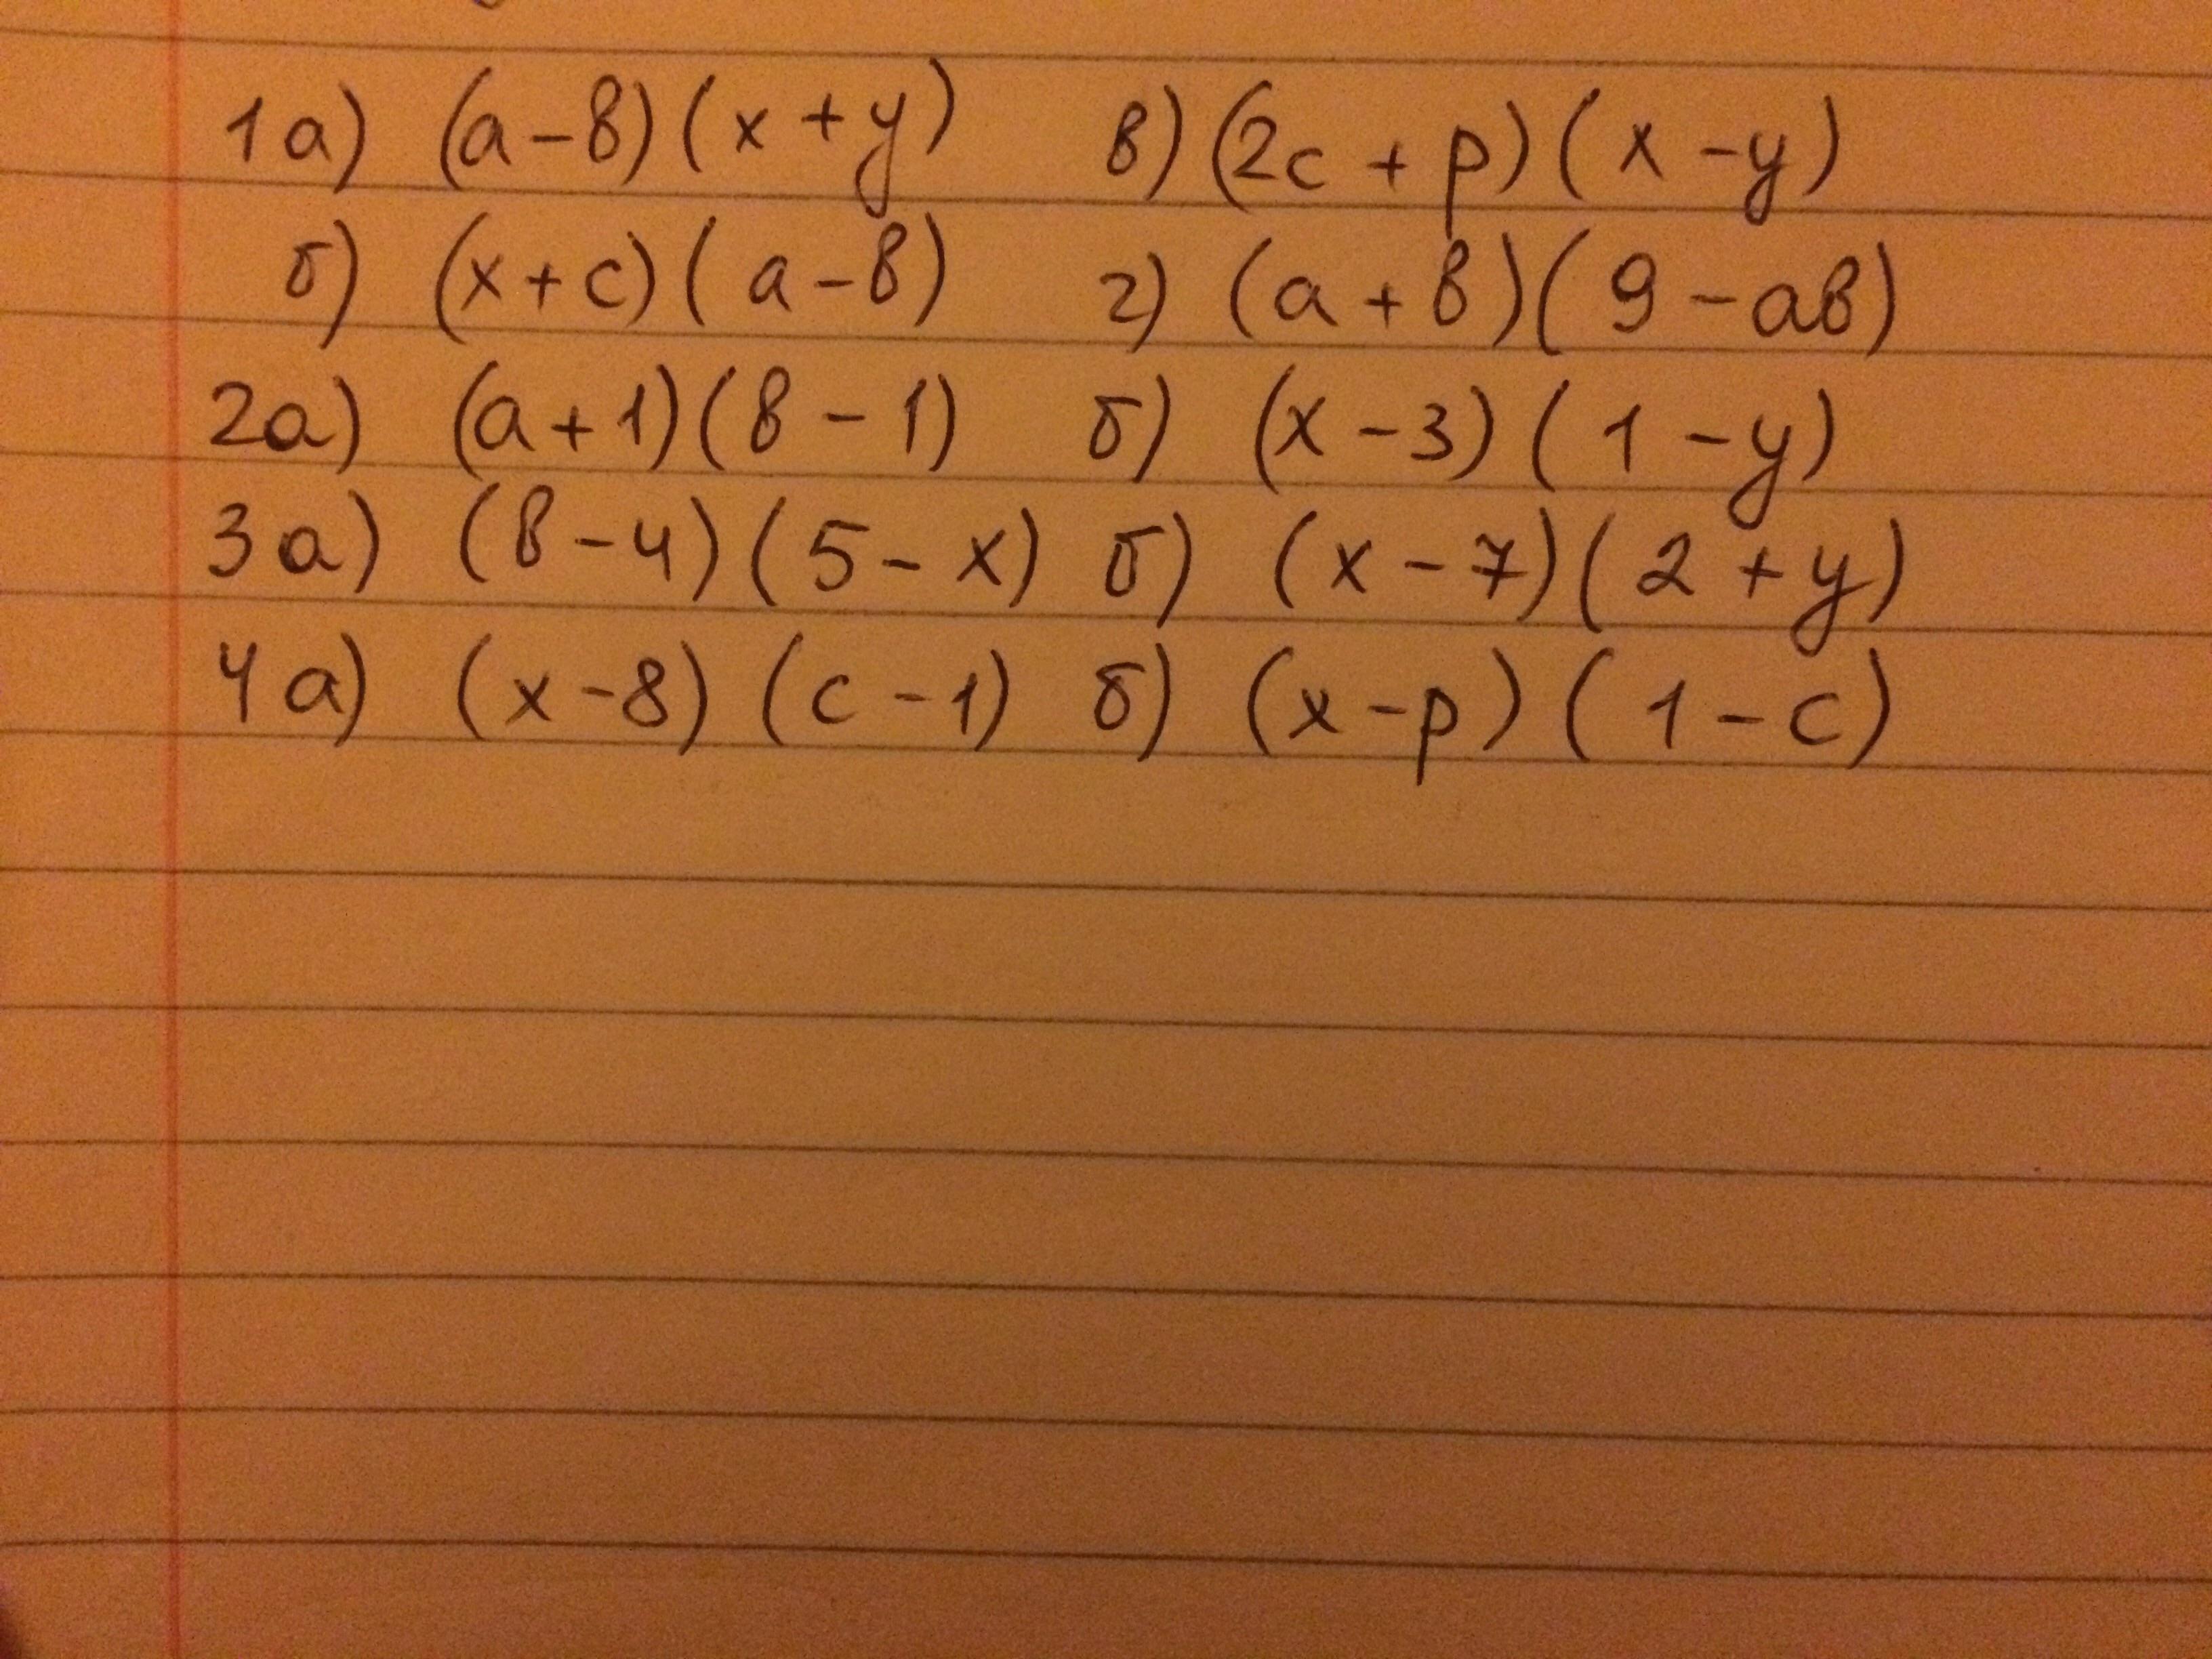 1а) (a-в)(x+y) в) (2c+p)(x-y)
б) (x+c)(a-в) г) (a+в)(9-aв)
2а) (a+1)(в-1) б) (x-3)(1-y)
3а) (в-4)(5-x) б) (x-7)(2+y)
4а) (x-8)(c-1) б) (x-p)(1-c)